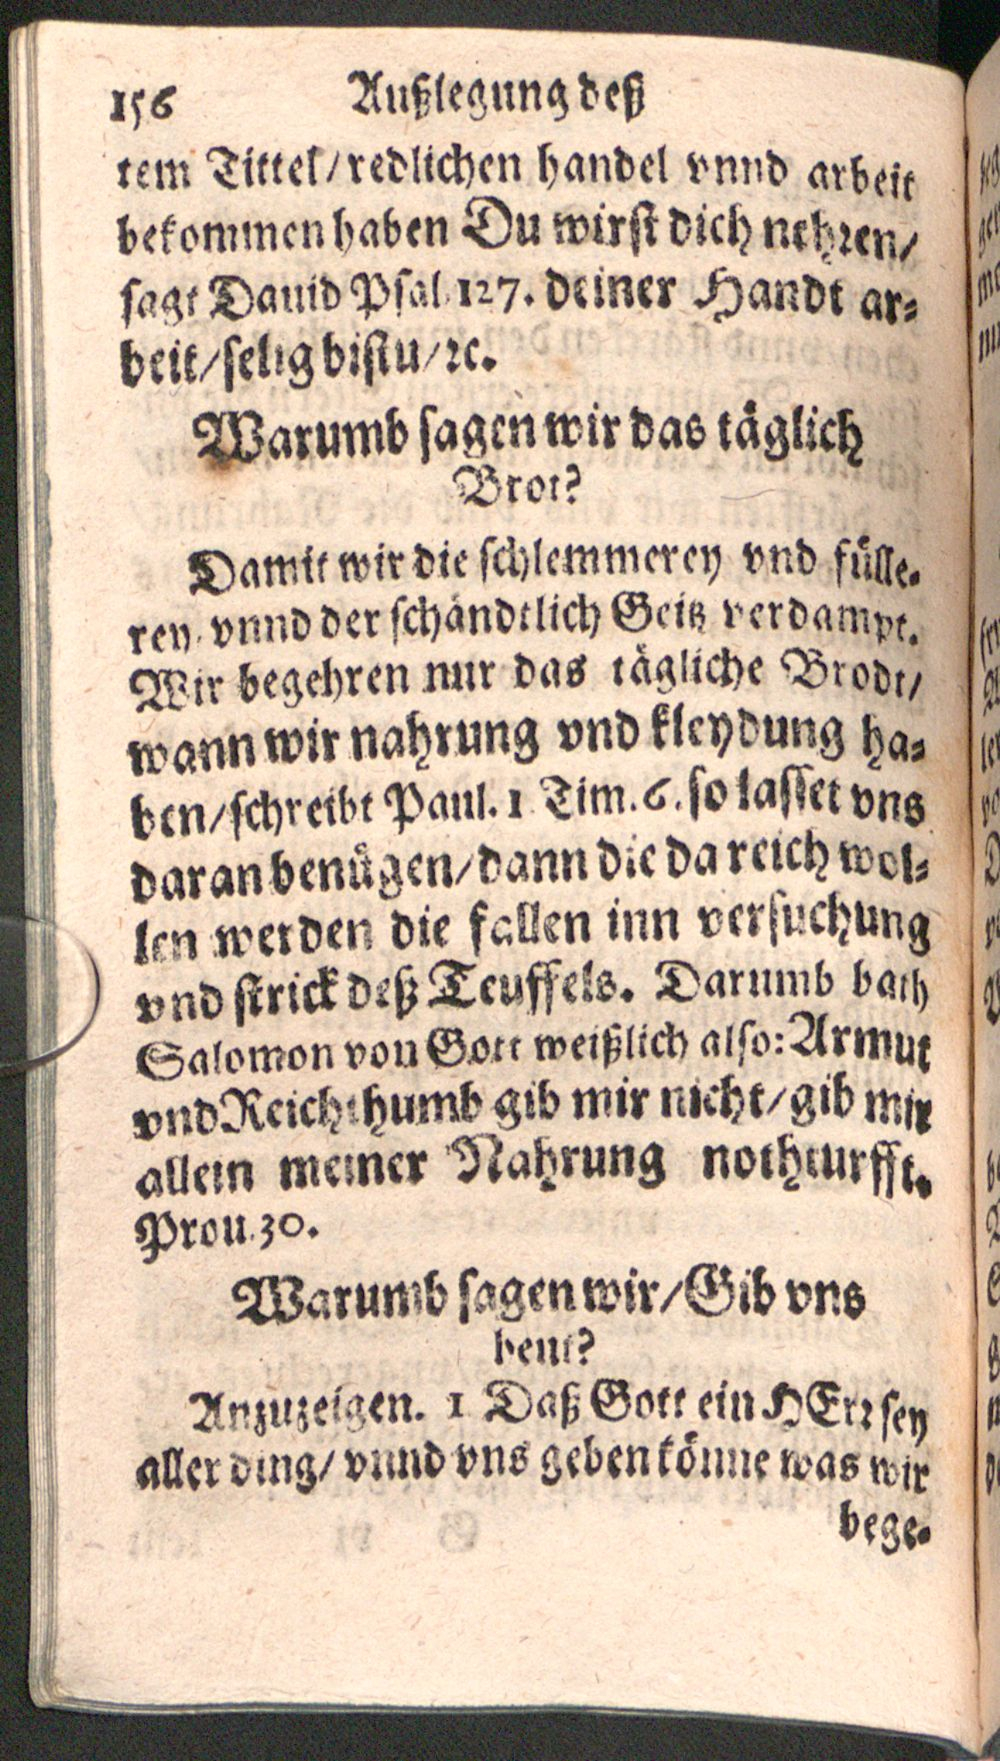 156 Außlegung deß
tem Tittel/redlichen handel vnnd arbeit
bekommen haben Du wirst dich nehren/
sagt Dauid Psal. 127. deiner Handt ar-
beit/selig bistu/ꝛc.
Warumb sagen wir das täglich
Brot?
Damit wir die schlemmerey vnd fülle-
rey, vnnd der schändtlich Geitz verdampt.
Wir begehren nur das tägliche Brodt/
wann wir nahrung vnd kleydung ha-
ben/schreibt Paul. 1 Tim. 6. so lasset vns
daran benügen/dann die da reich wol-
len werden die fallen inn versuchung
vnd strick deß Teuffels. Darumb bath
Salomon von Gott weißlich also: Armut
vnd Reichthumb gib mir nicht/gib mir
allein meiner Nahrung nothturfft.
Prou. 30.
Warumb sagen wir/Gib vns
heut?
Anzuzeigen. 1 Daß Gott ein HErr sey
aller ding/vnnd vns geben könne was wir
bege-